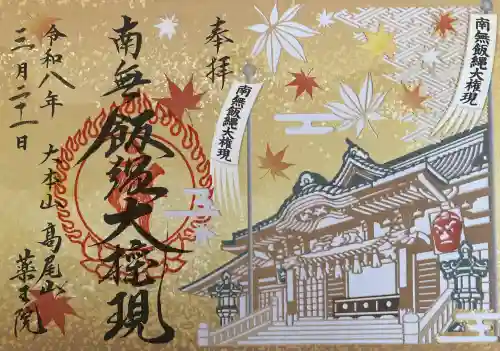 奉拝
南無飯縄大権現
令和八年
三月二十一日
大本山 高尾山
薬王院
南無飯縄大権現
南無飯縄大権現